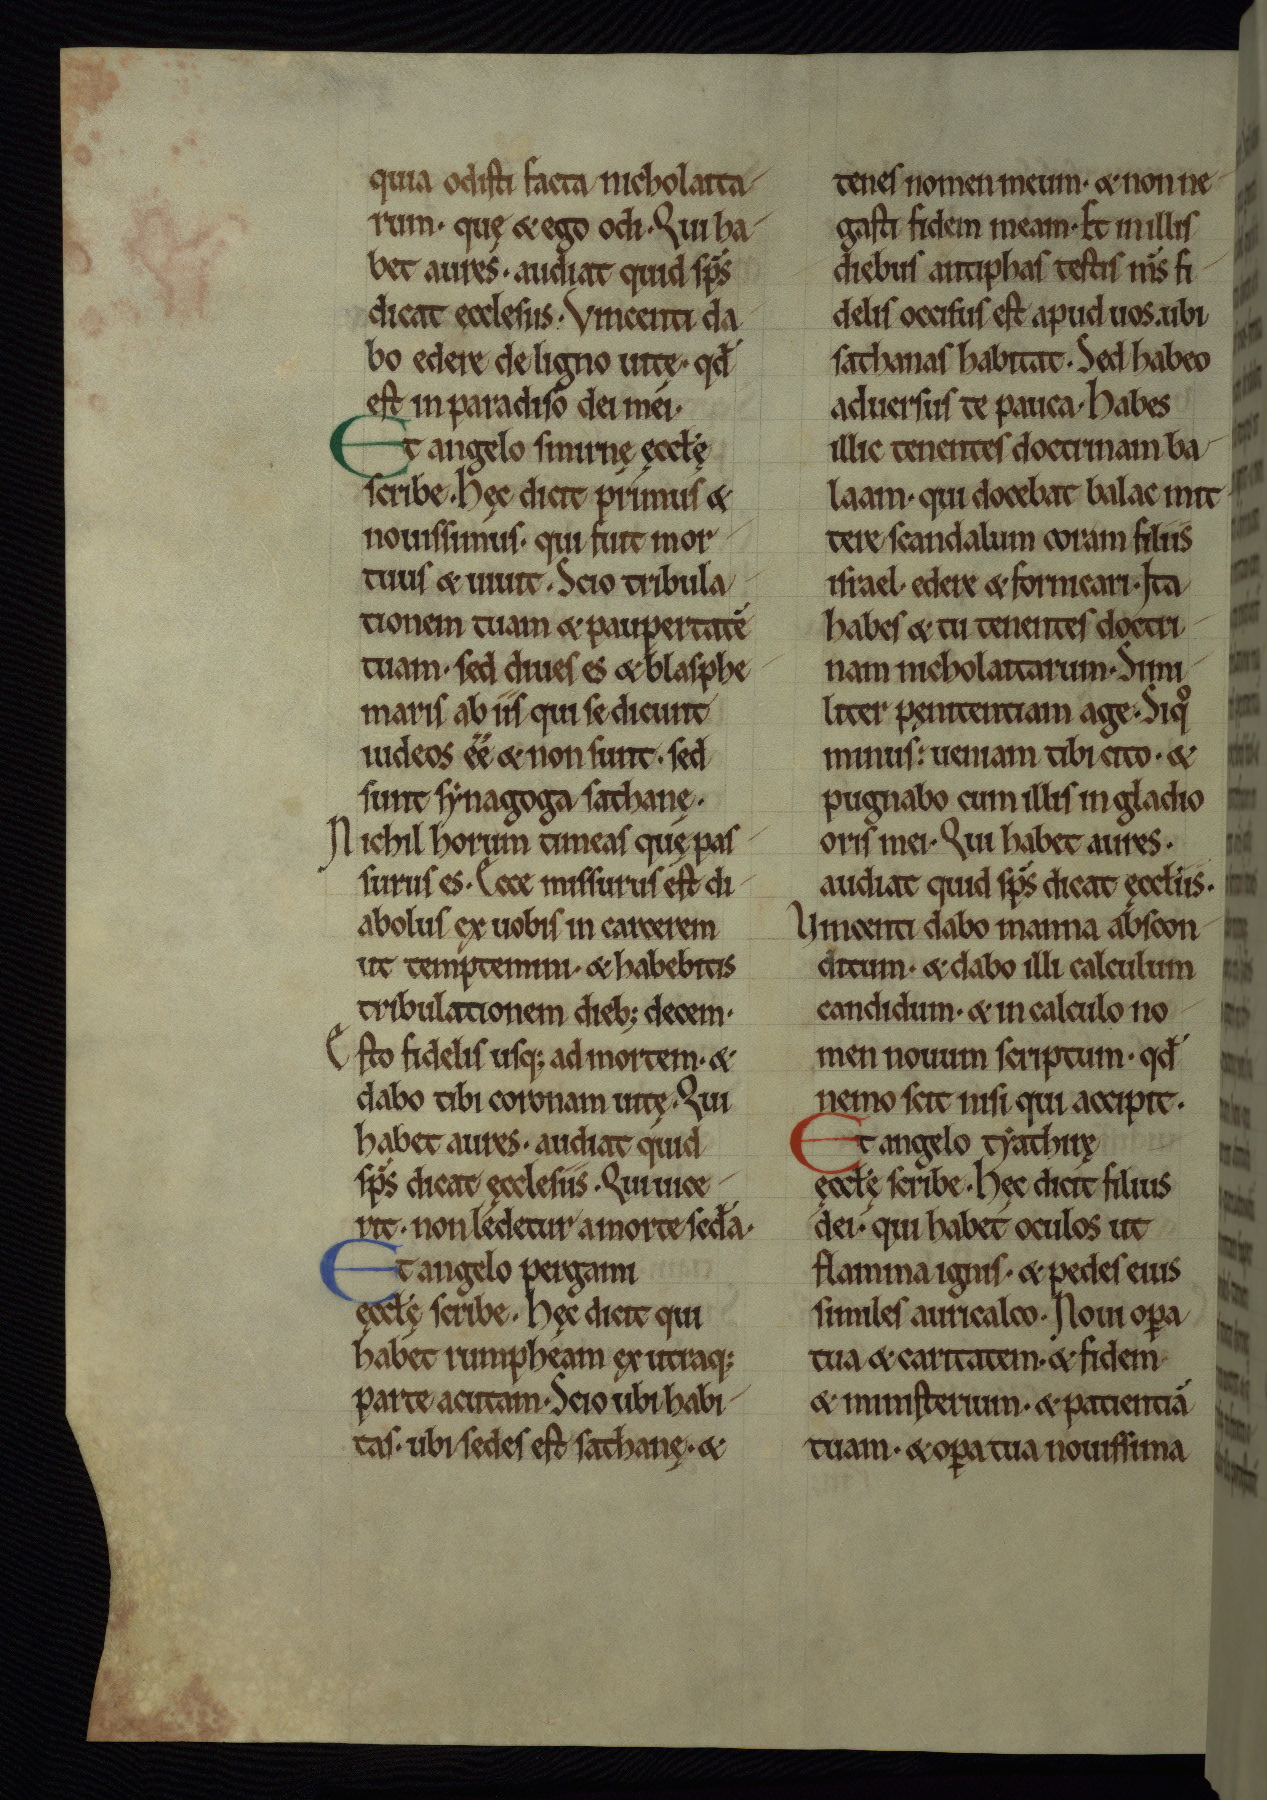 quia odisti facta nicholaita
rum· quę & ego odi· Qui ha
bet aures· audiat quid sps̄
dicat ecclesiis· Vincenti da
bo edere de ligno uitę· qd̄
est in paradiso dei mei·
Et angelo smirnę ęcclę̄
scribe· Hęc dicit primus &
nouissimus· qui fuit mor
tuus & uiuit· Scio tribula
tionem tuam & paupertatē
tuam· sed diues es & blasphe
maris ab iis qui se dicunt
iudeos eē & non sunt· sed
sunt synagoga sathanę·
Nichil horum timeas quę pas
surus es· Ecce missurus est di
abolus ex uobis in carcerem
ut temptemini· & habebitis
tribulationem dieb; decem·
Esto fidelis usq; ad mortem· &
dabo tibi coronam uitę· Qui
habet aures· audiat quid
sps̄ dicat ęcclesiis· Qui uice
rit· non ledetur a morte sed̄a·
Et angelo pergami
ęcclę̄ scribe· Hęc dicit qui
habet rumpheam ex utraq;
parte acutam· Scio ubi habi
tas· ubi sedes est sathanę· &
tenes nomen meum· & non ne
gasti fidem meam· Et in illis
diebus antiphas testis ms̄ fi
delis occisus est apud uos· ubi
sathanas habitat· Sed habeo
aduersus te pauca· Habes
illic tenentes doctrinam ba
laam· qui docebat balac mit
tere scandalum coram filiis
israel· edere & fornicari· Ita
habes & tu tenentes doctri
nam nicholaitarum· Simi
liter pęnitentiam age· Siqͦ
minus: ueniam tibi cito· &
pugnabo cum illis in gladio
oris mei· Qui habet aures·
audiat quid sps̄ dicat ęccłiis·
Vincenti dabo manna abscon
ditum· & dabo illi calculum
candidum· & in calculo no
men nouum scriptum· qd̄
nemo scit nisi qui accipit·
Et angelo tyathirę
ęcclę̄ scribe· Hęc dicit filius
dei· qui habet oculos ut
flamma ignis· & pedes eius
similes auricalco· Noui oꝑa
tua & caritatem· & fidem
& ministerium· & patientiā
tuam· & oꝑa tua nouissima